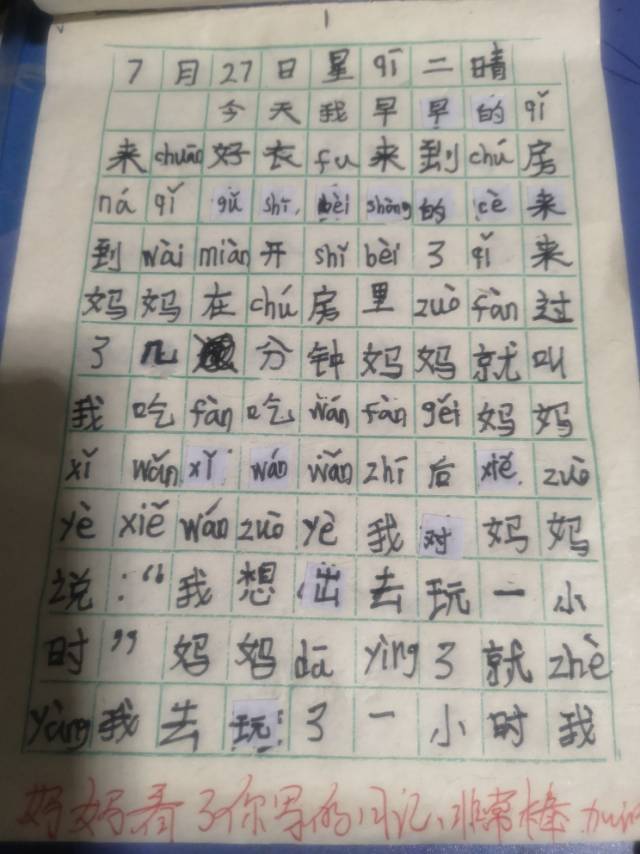 1
7月27日星qī二晴
今天我早早的qǐ
来chuān好衣fu来到chú房
ná qǐ gǔ shī bèi shòng的cè来
到wài miàn开shǐ bèi了qǐ来
妈妈在chú房里zuò fàn过
了几分钟妈妈就叫
我吃fàn吃wán fàn gěi妈妈
xǐ wǎn xǐ wán wǎn zhī后xiě zuò
yè xiě wán zuò yè我对妈妈
说:“我想出去玩一小
时”妈妈dā yìng了就zhè
yàng我去玩了一小时我
妈妈看了你写的日记、非常棒加油